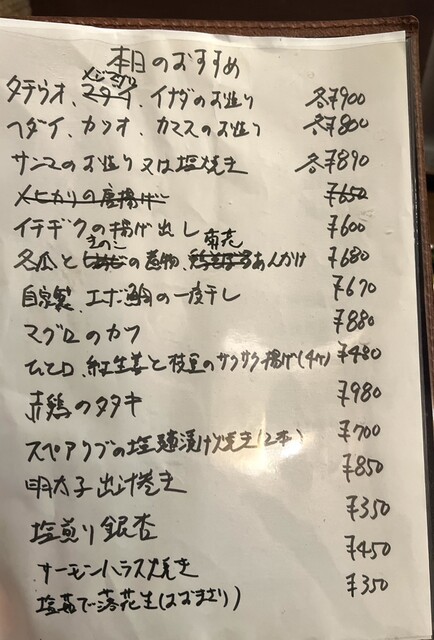 本日のおすすめ
メジマグロ
タチウオ、マダイ、イナダのお造り 各¥900
ヘダイ、カツオ、カマスのお造り 各¥800
サンマのお造り又は塩焼き 各¥890
メヒカリの唐揚げ ¥650
イチヂクの揚げ出し ¥600
きのこ
冬瓜との煮物、あんかけ ¥680
自家製 エボ鯛の一夜干し ¥670
マグロのカツ ¥880
紅生姜と枝豆のサクサク揚げ(4ケ) ¥480
赤鶏のタタキ ¥980
スペアリブの塩麹漬け焼き(2本) ¥700
明太子出汁巻き ¥850
塩煎り銀杏 ¥350
サーモンハラス焼き ¥450
塩茹で落花生(おおまさり) ¥350